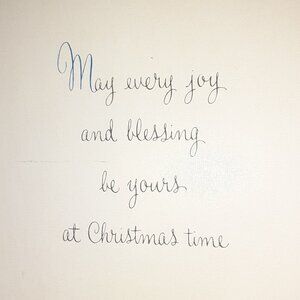 May every joy
and blessing
be yours
at Christmas time